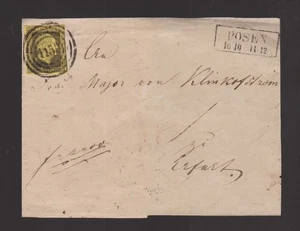 POSEN
10 10 11-12
An
Major von Klinkofström
franco
Erfurt.